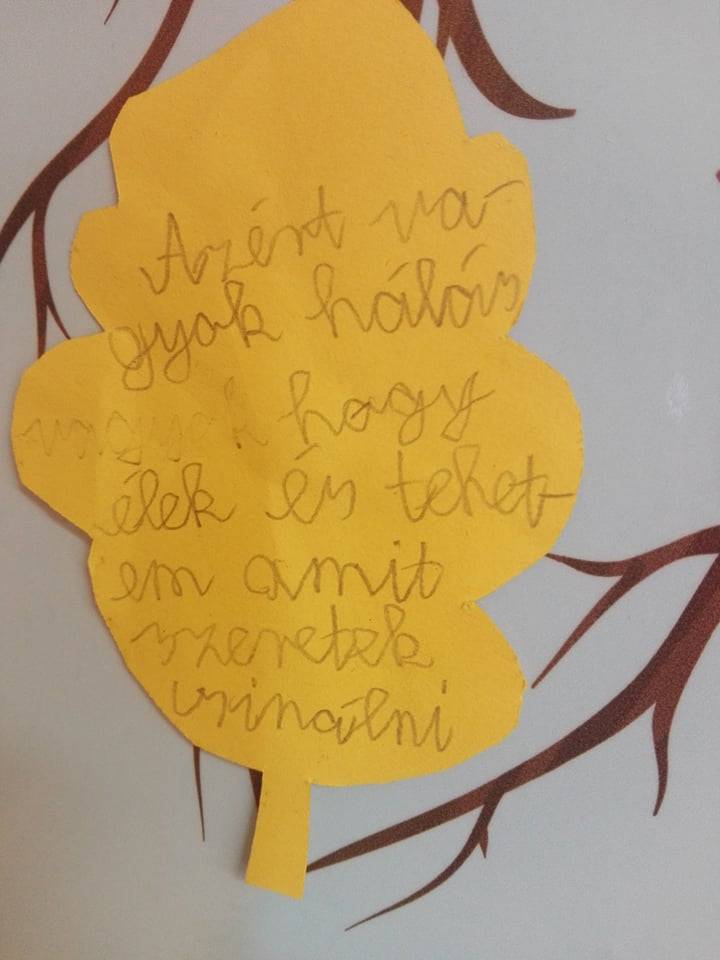 Azért va-
gyok hálás
vagyok hogy
élek és tehet-
em amit
szeretek
csinálni